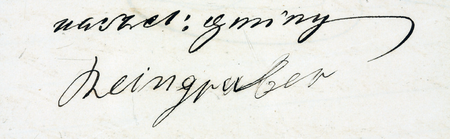 naczel: gminy
Reingruber